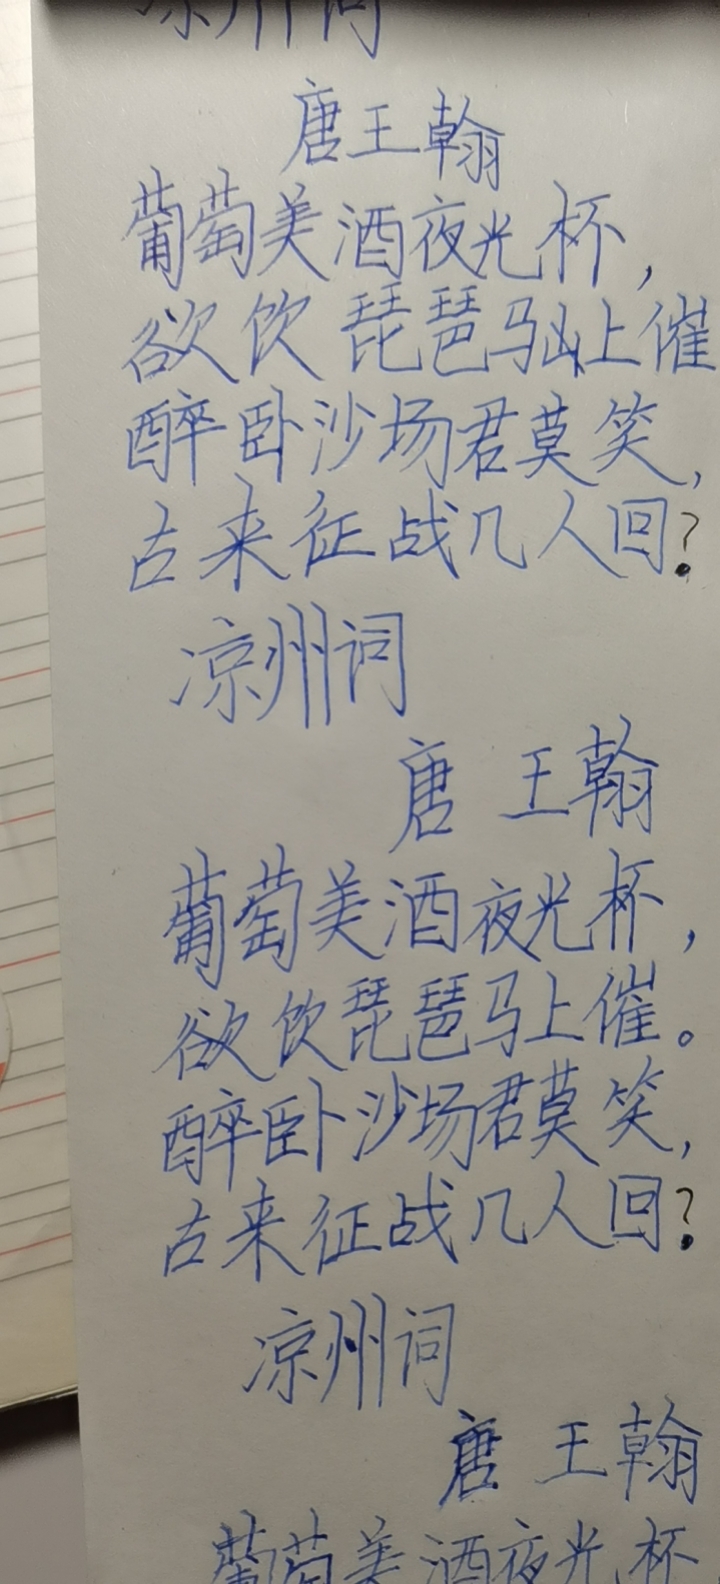 凉州词
唐王翰
葡萄美酒夜光杯，
欲饮琵琶马上催
醉卧沙场君莫笑，
古来征战几人回？
凉州词
唐 王翰
葡萄美酒夜光杯，
欲饮琵琶马上催。
醉卧沙场君莫笑，
古来征战几人回？
凉州词
唐 王翰
葡萄美酒夜光杯